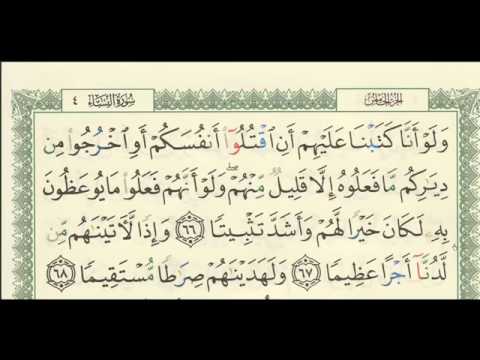 الجزء الخامس
سورة النساء ٤
وَلَوْ أَنَّا كَتَبْنَا عَلَيْهِمْ أَنِ ٱقْتُلُوٓا۟ أَنفُسَكُمْ أَوِ ٱخْرُجُوا۟ مِن
دِيَـٰرِكُم مَّا فَعَلُوهُ إِلَّا قَلِيلٌ مِّنْهُمْ ۖ وَلَوْ أَنَّهُمْ فَعَلُوا۟ مَا يُوعَظُونَ
بِهِۦ لَكَانَ خَيْرًا لَّهُمْ وَأَشَدَّ تَثْبِيتًا ٦٦ وَإِذًا لَّـَٔاتَيْنَـٰهُم مِّن
لَّدُنَّآ أَجْرًا عَظِيمًا ٦٧ وَلَهَدَيْنَـٰهُمْ صِرَٰطًا مُّسْتَقِيمًا ٦٨